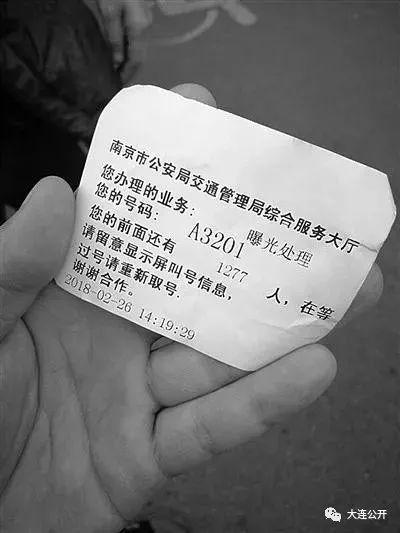 南京市公安局交通管理局综合服务大厅
您办理的业务： 曝光处理
您的号码： A3201
您的前面还有 1277 人，在等
请留意显示屏叫号信息，
过号请重新取号.
谢谢合作。
2018-02-26 14:19:29
大连公开